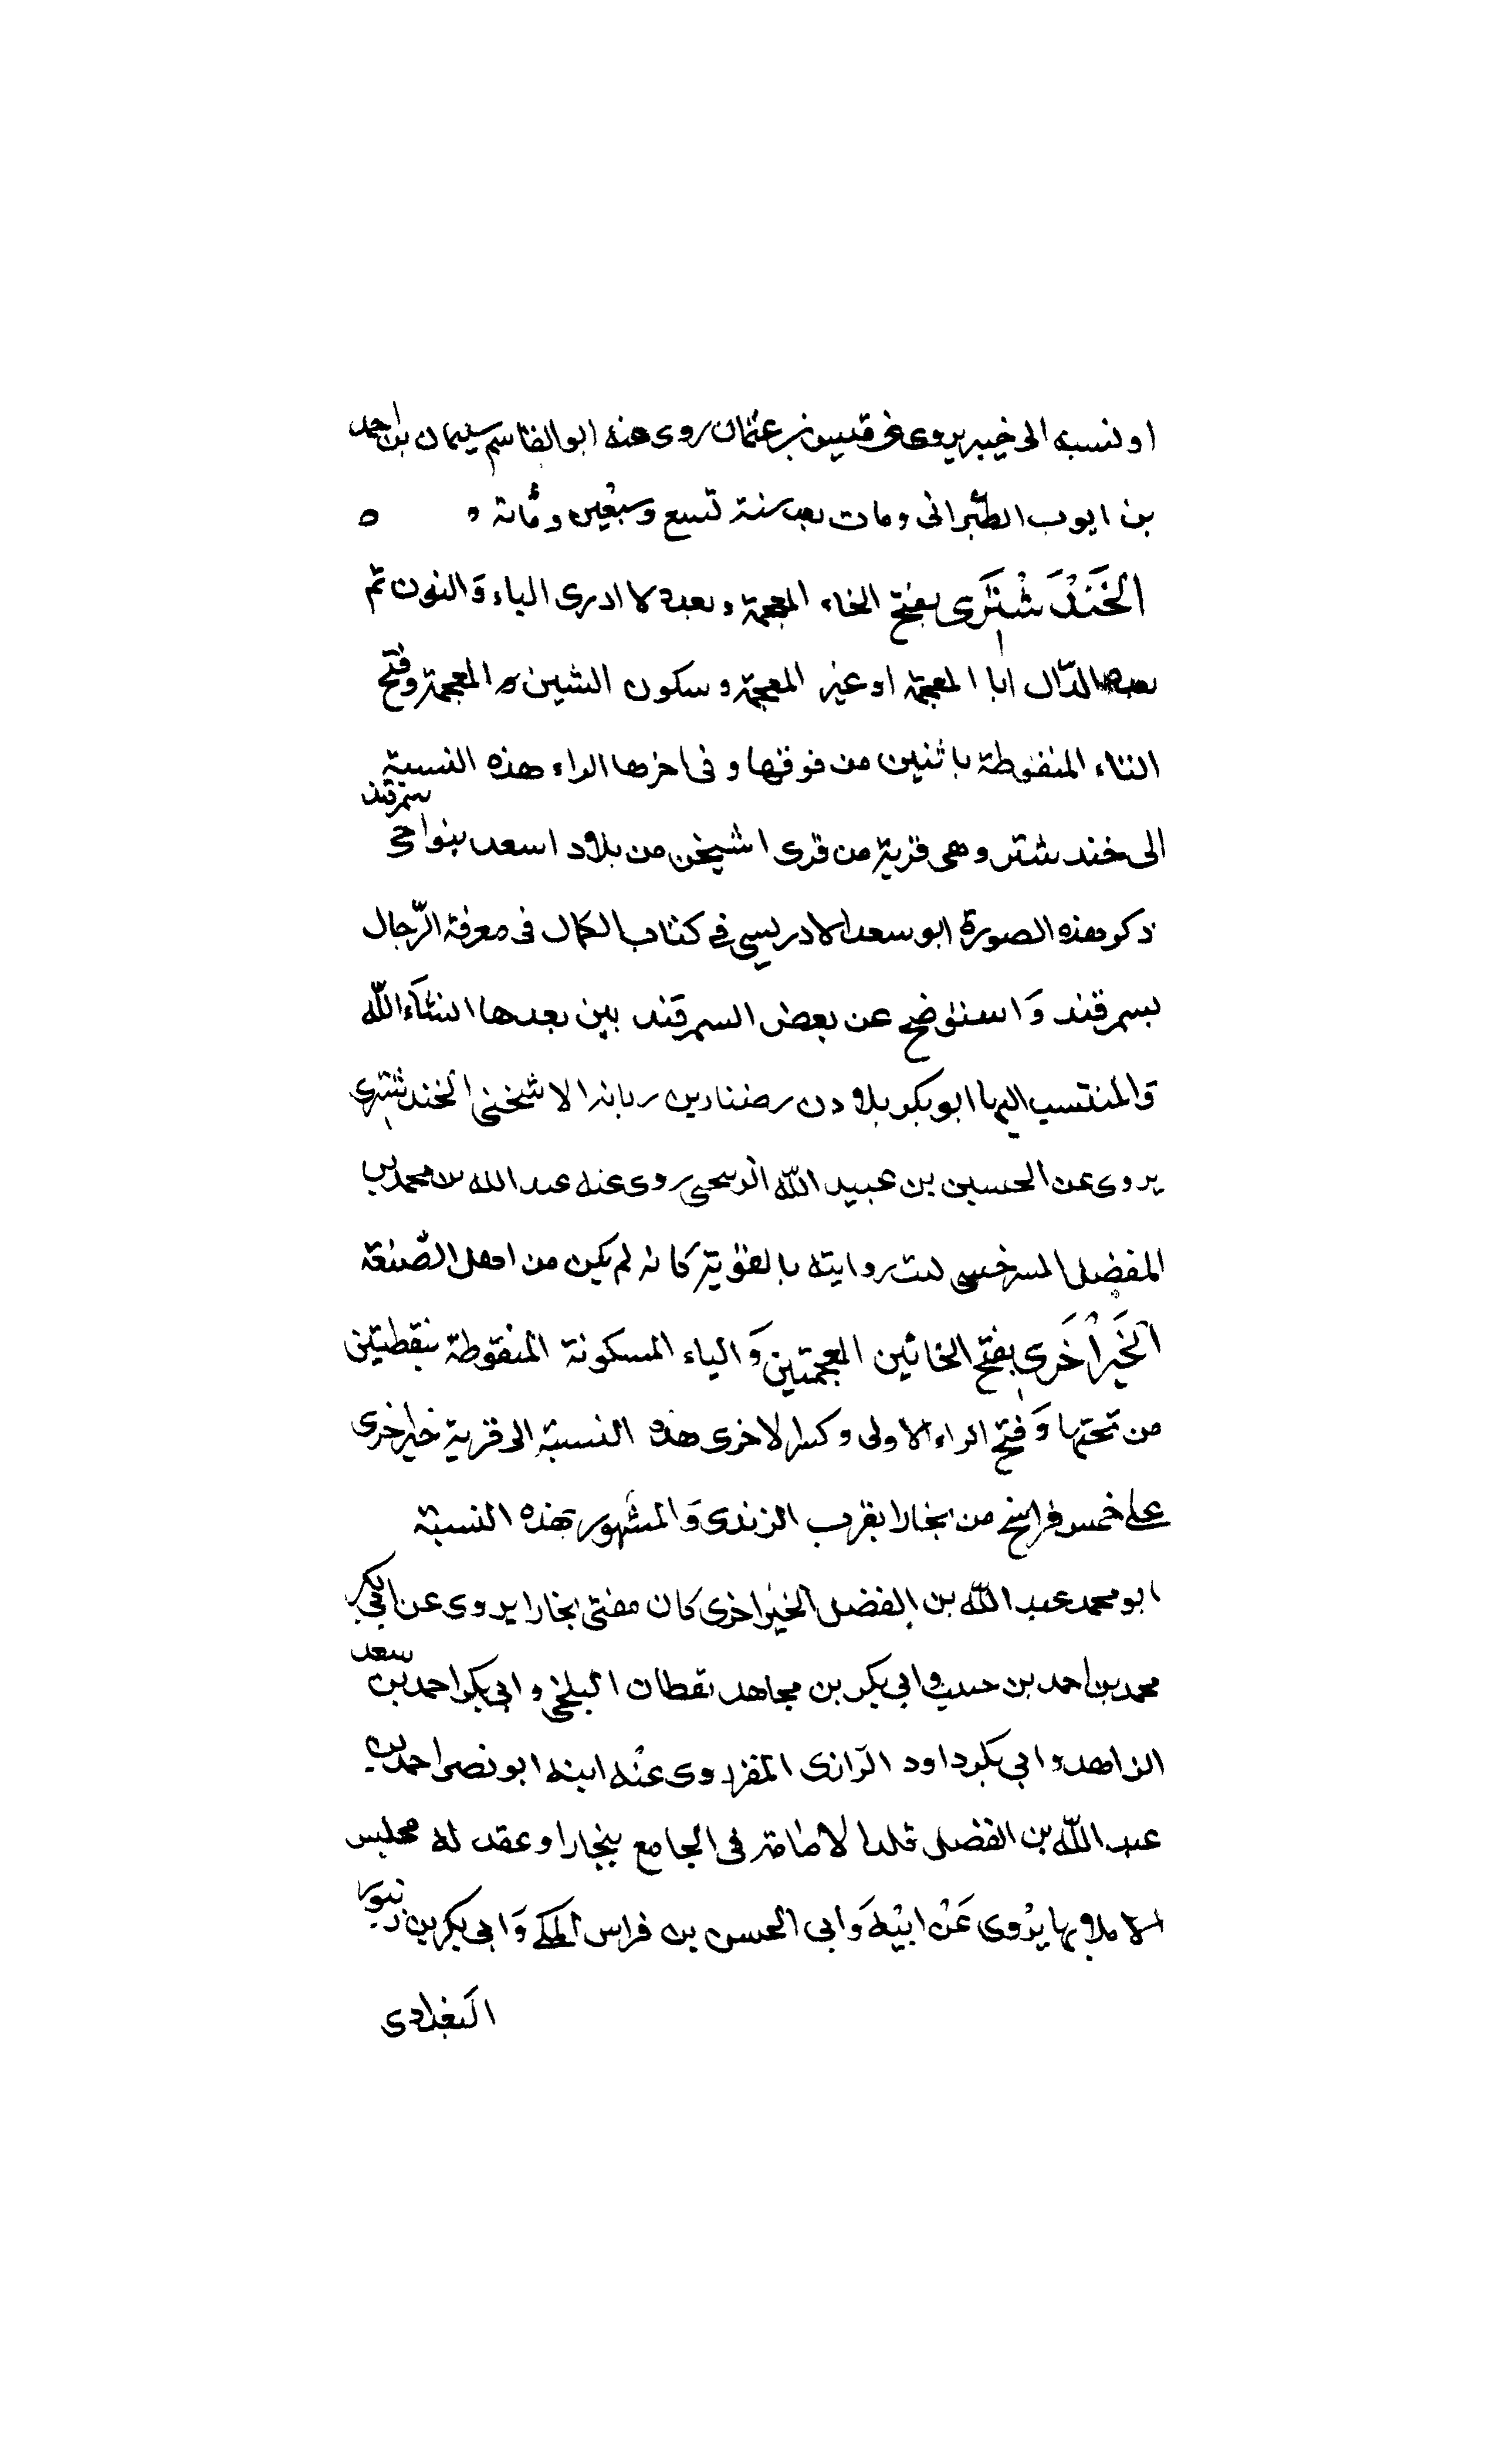 او نسبه الى خيبر يروى عن قيس بن عثمان روى عنه ابو القاسم سليمان بن احمد
بن ايوب الطبرانى ومات بعد سنة تسع وسبعين ومائة ه
الخَنْدَشْتَرى بفتح الخاء المعجمة وبعده لا ادرى الياء وَالنون ثم
بعدها الدّال اما المعجمة او غير المعجمة و سكون الشين المعجمة وفتح
التاء المنقوطة باثنين من فوقها وفى اخرها الراء هذه النسبة
الى خندشتر وهى قرية من قرى اشيخن من بلاد اسعد بنواحى سمرقند
ذكر هذه الصورة ابو سعد الادريسي فى كتاب الكمال فى معرفة الرّجال
بسمرقند وَاستوضح عن بعض السمرقند بين بعدها انشآءالله
وَالمنتسب اليها ابو بكر بلاد بن الاشخنى الخندشترى
يروى عن الحسين بن عبيد اللّه روى عنه عبد الله بن محمد بن
المفضل السرخسى ليت روايته بالقوية كانه لم يكن من اهل الصّنعة
الخَيْرَاخَرى بفتح الخائين المعجمتين وَالياء المسكونة المنقوطة بنقطتين
من تحتها وَفتح الراء الاولى وكسر الاخرى هذه النسبة الى قرية خيراخرى
على خمس فراسخ من بخارا بقرب الزندى وَالمشهور بهذه النسبة
ابو محمد عبد اللّه بن الفضل الخيراخرى كان مفتى بخارا يروى عن ابى بكر
محمد بن احمد بن وابى بكر بن مجاهد القطان البلخى وابى بكر احمد بن سعد
الزاهد وابى بكر داود الرّازى روى عنه ابنه ابو نصر احمد بن
عبد اللّه بن الفضل قلد الامامة فى الجامع ببخارا وعقد له مجلس
الاملا بها يرْوى عَنْ ابيْه وَابى الحسن بن فراس المكى وَابى بكر بن زنبور
البغدادى